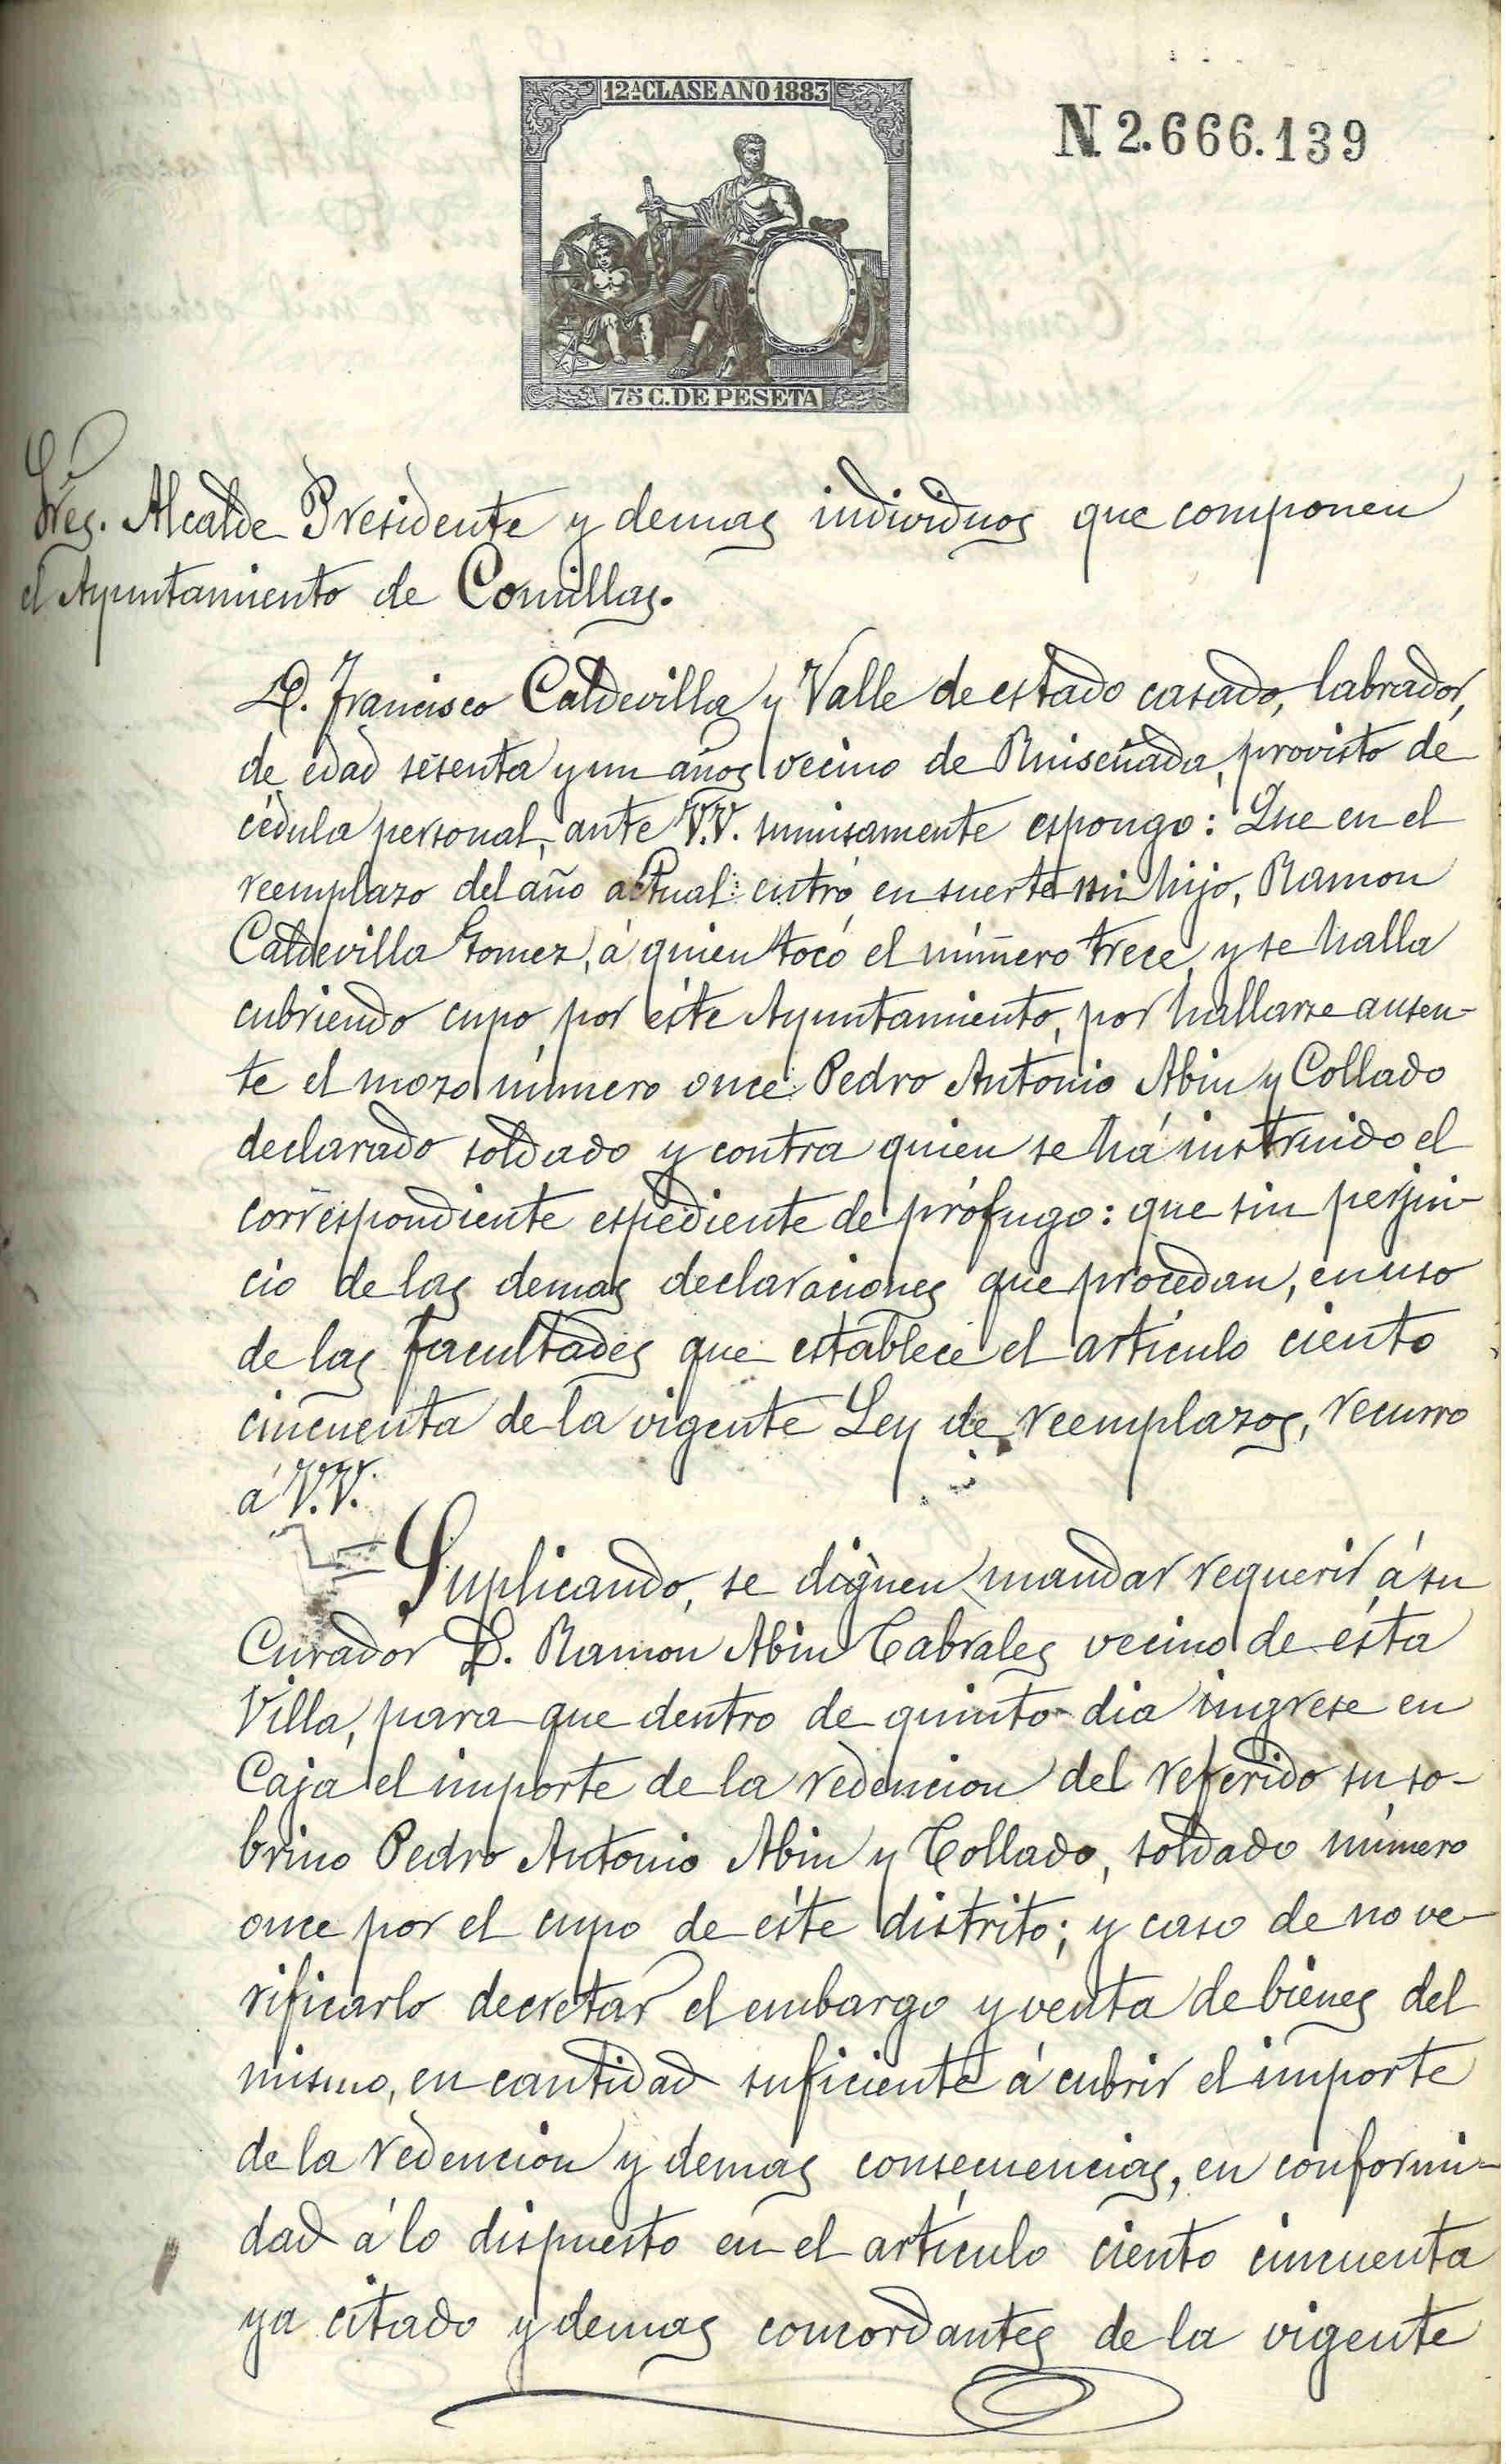 12ª CLASE AÑO 1883
N 2.666.139
75 C. DE PESETA
Sres. Alcalde Presidente y demas individuos que componen
el Ayuntamiento de Comillas.
D. Francisco Caldevilla y Valle de estado casado, labrador,
de edad sesenta y un años vecino de Ruiseñada, provisto de
cédula personal, ante V.V. sumisamente espongo: Que en el
reemplazo del año actual entró en suerte mi hijo, Ramon
Caldevilla Gomez, á quien tocó el número trece, y se halla
cubriendo cupo, por éste Ayuntamiento, por hallarse ausen-
te el mozo número once Pedro Antonio Abin y Collado
declarado soldado y contra quien se há instruido el
correspondiente espediente de prófugo: que sin perjui-
cio de las demas declaraciones que procedan, en uso
de las facultades que establece el artículo ciento
cincuenta de la vigente Ley de reemplazos, recurro
á V.V.
Suplicando, se dignen mandar requerir á su
Curador D. Ramon Abin Cabrales vecino de ésta
Villa, para que dentro de quinto dia ingrese en
Caja el importe de la redencion del referido su so-
brino Pedro Antonio Abin y Collado, soldado número
once por el cupo de éste distrito; y caso de no ve-
rificarlo decretar el embargo y venta de bienes del
mismo, en cantidad suficiente á cubrir el importe
de la redencion y demas consecuencias, en conformi-
dad á lo dispuesto en el artículo ciento cincuenta
ya citado y demas concordantes de la vigente